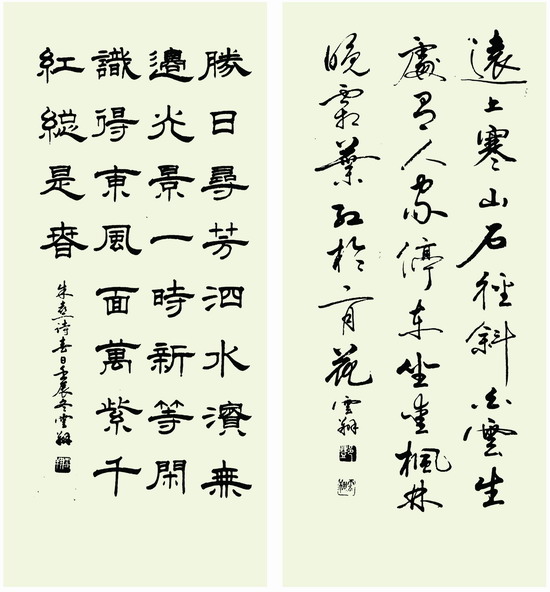 遠上寒山石徑斜白雲生
處有人家停車坐愛楓林
晚霜葉紅於二月花
雲翔
勝日尋芳泗水濱無
邊光景一時新等閑
識得東風面萬紫千
紅総是春
朱熹诗春日壬辰冬雲翔